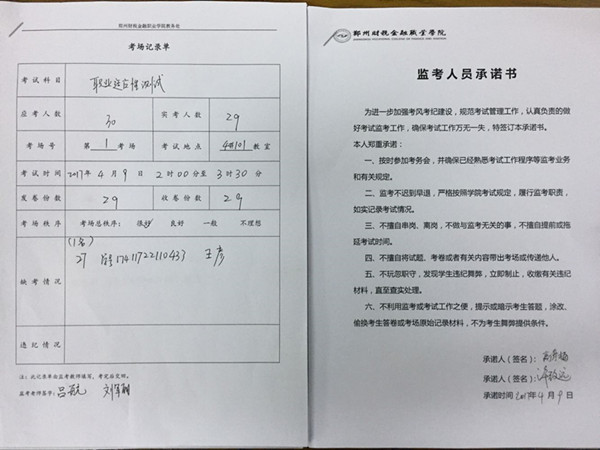 郑州财税金融职业学院教务处
考场记录单
考试科目 职业适应性测试
应考人数 30 实考人数 29
考场号 第 1 考场 考试地点 4#101 教室
考试时间 2017年 4 月 9 日 2时00分至 3时30分
发卷份数 29 收卷份数 29
考场秩序 考场总秩序: 很好 良好 一般 不理想
(1名)
缺考情况 27 17411722110433 王彦
违纪情况
注:此记录单由监考教师填写,考完后交回。
监考老师签字:吕航
郑州财税金融职业学院
ZHENGZHOU VOCATIONAL COLLEGE OF FINANCE AND TAXATION
监考人员承诺书
为进一步加强考风考纪建设,规范考试管理工作,认真负责的做
好考试监考工作,确保考试工作万无一失,特签订本承诺书。
本人郑重承诺:
一、按时参加考务会,并确保已经熟悉考试工作程序等监考业务
和有关规定。
二、监考不迟到早退,严格按照学院考试规定,履行监考职责,
如实记录考试情况。
三、不擅自串岗、离岗,不做与监考无关的事,不擅自提前或拖
延考试时间。
四、不擅自将试题、考卷或者有关内容带出考场或传递他人。
五、不玩忽职守,发现学生违纪舞弊,立即制止,收缴有关违纪
材料,直至查实处理。
六、不利用监考或考试工作之便,提示或暗示考生答题,涂改、
偷换考生答卷或考场原始记录材料,不为考生舞弊提供条件。
承诺人(签名):
承诺人(签名):
承诺时间 2017年 4 月 9 日